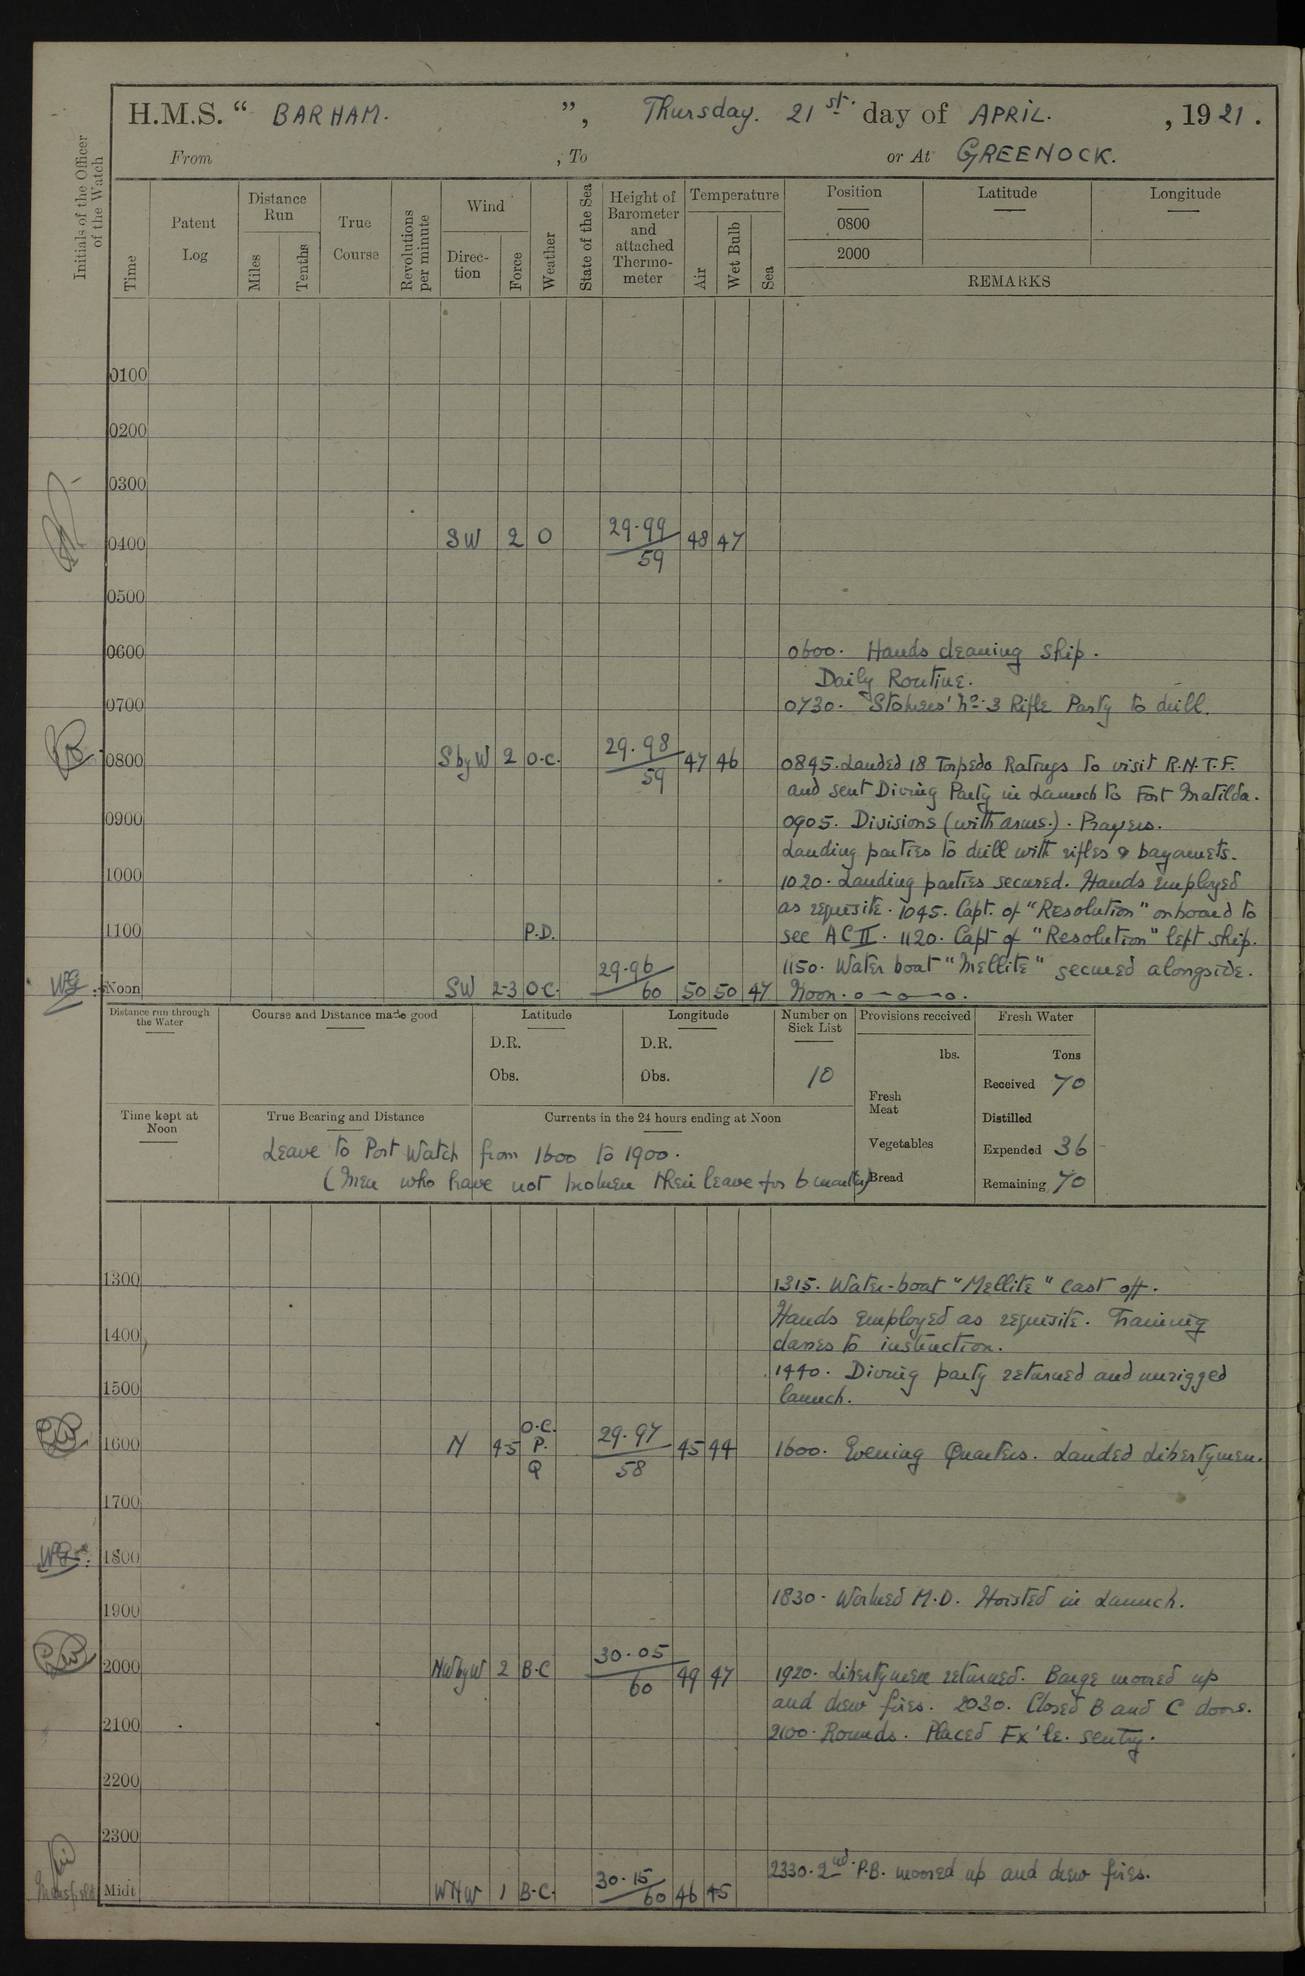 H.M.S. “ BARHAM. ”, Thursday. 21st. day of APRIL. , 1921.
From , To or At GREENOCK.
Initials of the Officer of the Watch
Time
Patent Log
Distance Run
Miles
Tenths
True Course
Revolutions per minute
Wind
Direc-tion
Force
Weather
State of the Sea
Height of Barometer and attached Thermo-meter
Temperature
Air
Wet Bulb
Sea
Position
Latitude
Longitude
0800
2000
REMARKS
0100
0200
0300
0400 SW 2 O 29.99 59 48 47
0500
0600 0600. Hands cleaning ship.
Daily Routine.
0700 0730. Stokers' No. 3 Rifle Party to drill.
0800 SbyW 2 O.C. 29.98 59 47 46 0845. Landed 18 Torpedo Ratings to visit R.N.T.F.
and sent Diving Party in Launch to Fort Matilda.
0900 0905. Divisions (with arms.). Prayers.
Landing parties to drill with rifles & bayonets.
1000 1020. Landing parties secured. Hands employed
as requisite. 1045. Capt. of "Resolution" onboard to
1100 P.D. see AC II. 1120. Capt of "Resolution" left ship.
1150. Water boat "Mellite" secured alongside.
Noon SW 2-3 O.C. 29.96 60 50 50 47 Noon. o — o — o.
Distance run through the Water
Course and Distance made good
Latitude
D.R.
Obs.
Longitude
D.R.
Obs.
Number on Sick List
10
Provisions received
lbs.
Fresh Meat
Vegetables
Bread
Fresh Water
Tons
Received 70
Distilled
Expended 36
Remaining 70
Time kept at Noon
True Bearing and Distance
Currents in the 24 hours ending at Noon
Leave to Port Watch from 1600 to 1900.
(Men who have not broken their leave for 6 months)
1300 1315. Water-boat "Mellite" cast off.
Hands employed as requisite. Training
1400 classes to instruction.
1440. Diving party returned and unrigged
1500 launch.
1600 N 4-5 O.C. P. Q 29.97 58 45 44 1600. Evening Quarters. Landed Libertymen.
1700
1800
1830. Worked M.D. Hoisted in Launch.
1900
2000 NWbyW 2 B.C 30.05 60 49 47 1920. Libertymen returned. Barge moored up
and drew fires. 2030. Closed B and C doors.
2100 2100. Rounds. Placed Fx'le. sentry.
2200
2300
2330. 2nd. P.B. moored up and drew fires.
Midt WNW 1 B.C. 30.15 60 46 45